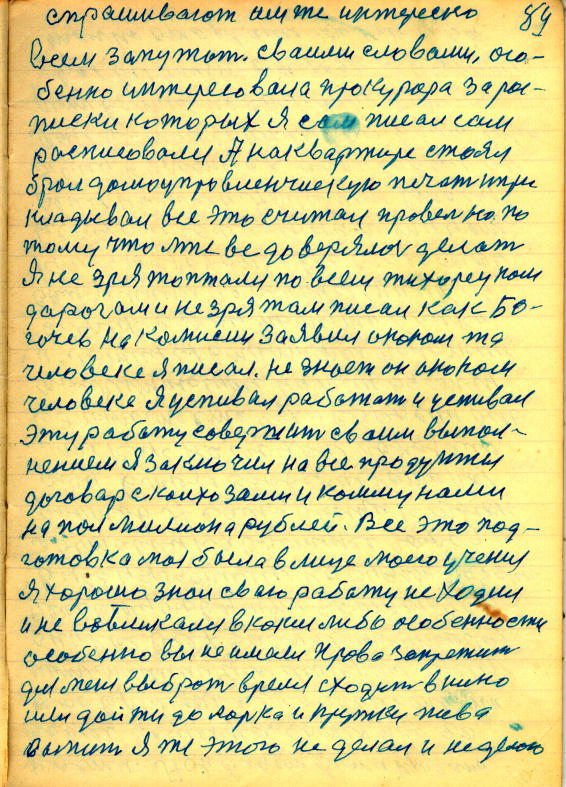 спрашивают им же интересно 84
всем запутат. Своими словами, осо-
бенно интересовала прокурора за рос-
писки которых я сам писал сам
росписовали Я на квартире стоял
брал домоуправленческую печат и при
кладывал все это считал провельно по
тому что мне все доверялос делат
Я не зря топтали по всем тихорецким
дорогам и не зря там писал как Бо-
гочев на комисии заявил о ком та
человеке я писал. не знает он о ком
человеке Я успивал работат и успивал
эту работу совершит своим выпол-
нением Я заключил на все продукты
договар с колхозами и коммунами
на пол милиона рублей. Все это под-
готовка моя была в лице моего учения
Я хорошо знал сваю работу не ходил
и не вовликали в какии либо особенности
особенно вы не имали права запретит
для меня выброт время сходит в кино
или дойти до ларка и пружку пива
выпит Я же этого не делал и не делаю